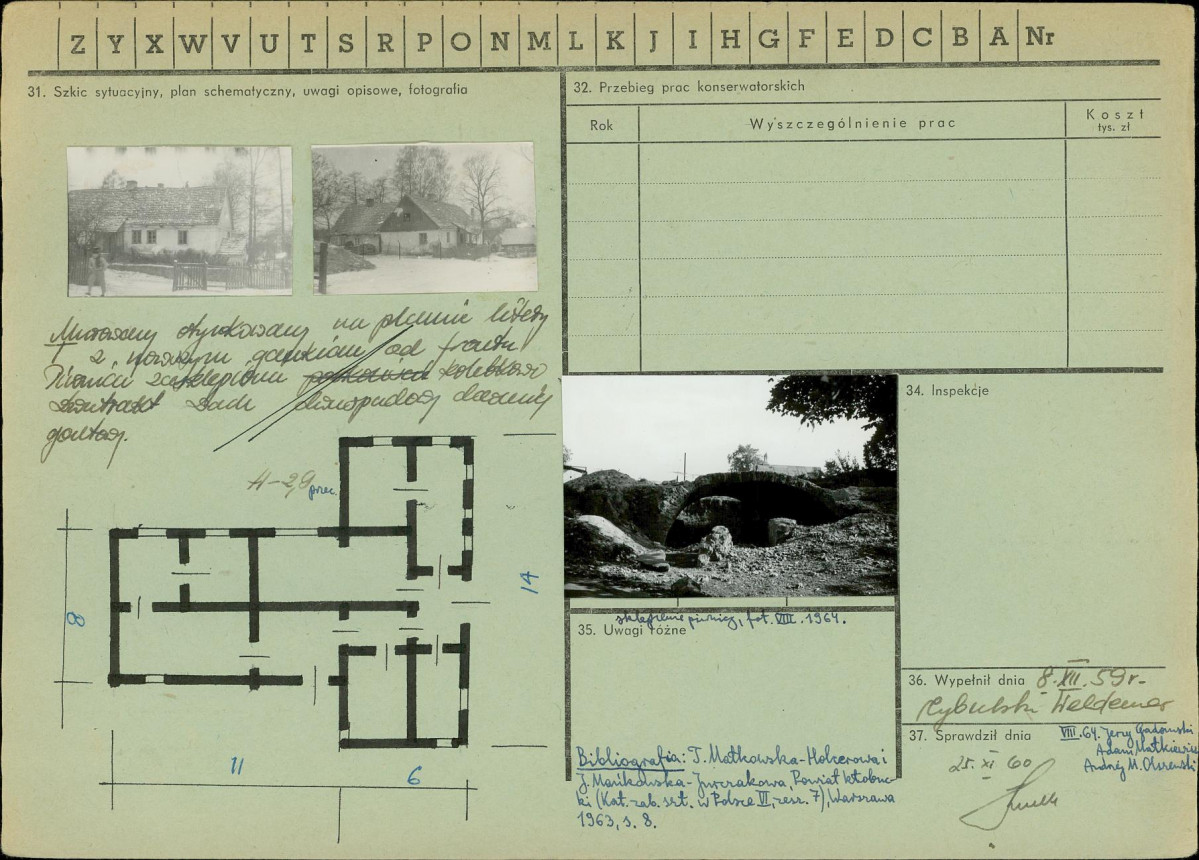 Z Y X W V U T S R P O N M L K J I H G F E D C B A Nr
31. Szkic sytuacyjny, plan schematyczny, uwagi opisowe, fotografia
Murowany otynkowany na planie litery
T z nowszym gankiem od frontu
Piwnica zasklepiona kolebkowo
dach dwuspadowy dawniej
gontowy.
H-2,9 przec.
8
14
11
6
32. Przebieg prac konserwatorskich
Rok
Wyszczególnienie prac
Koszt
tys. zł
sklepienie piwnicy, fot. VIII. 1964.
34. Inspekcje
35. Uwagi różne
Bibliografia: T. Małkowska-Holcerowa i
J. Mańkowska-Jurczakowa, Powiat kłobuc-
ki (Kat. zab. szt. w Polsce VI, zesz. 7), Warszawa
1963, s. 8.
36. Wypełnił dnia 8.XII.59r.
Cybulski Waldemar
37. Sprawdził dnia VIII.64. Jerzy Gadomski
Adam Małkiewicz
Andrzej M. Olszewski
25. XI 60